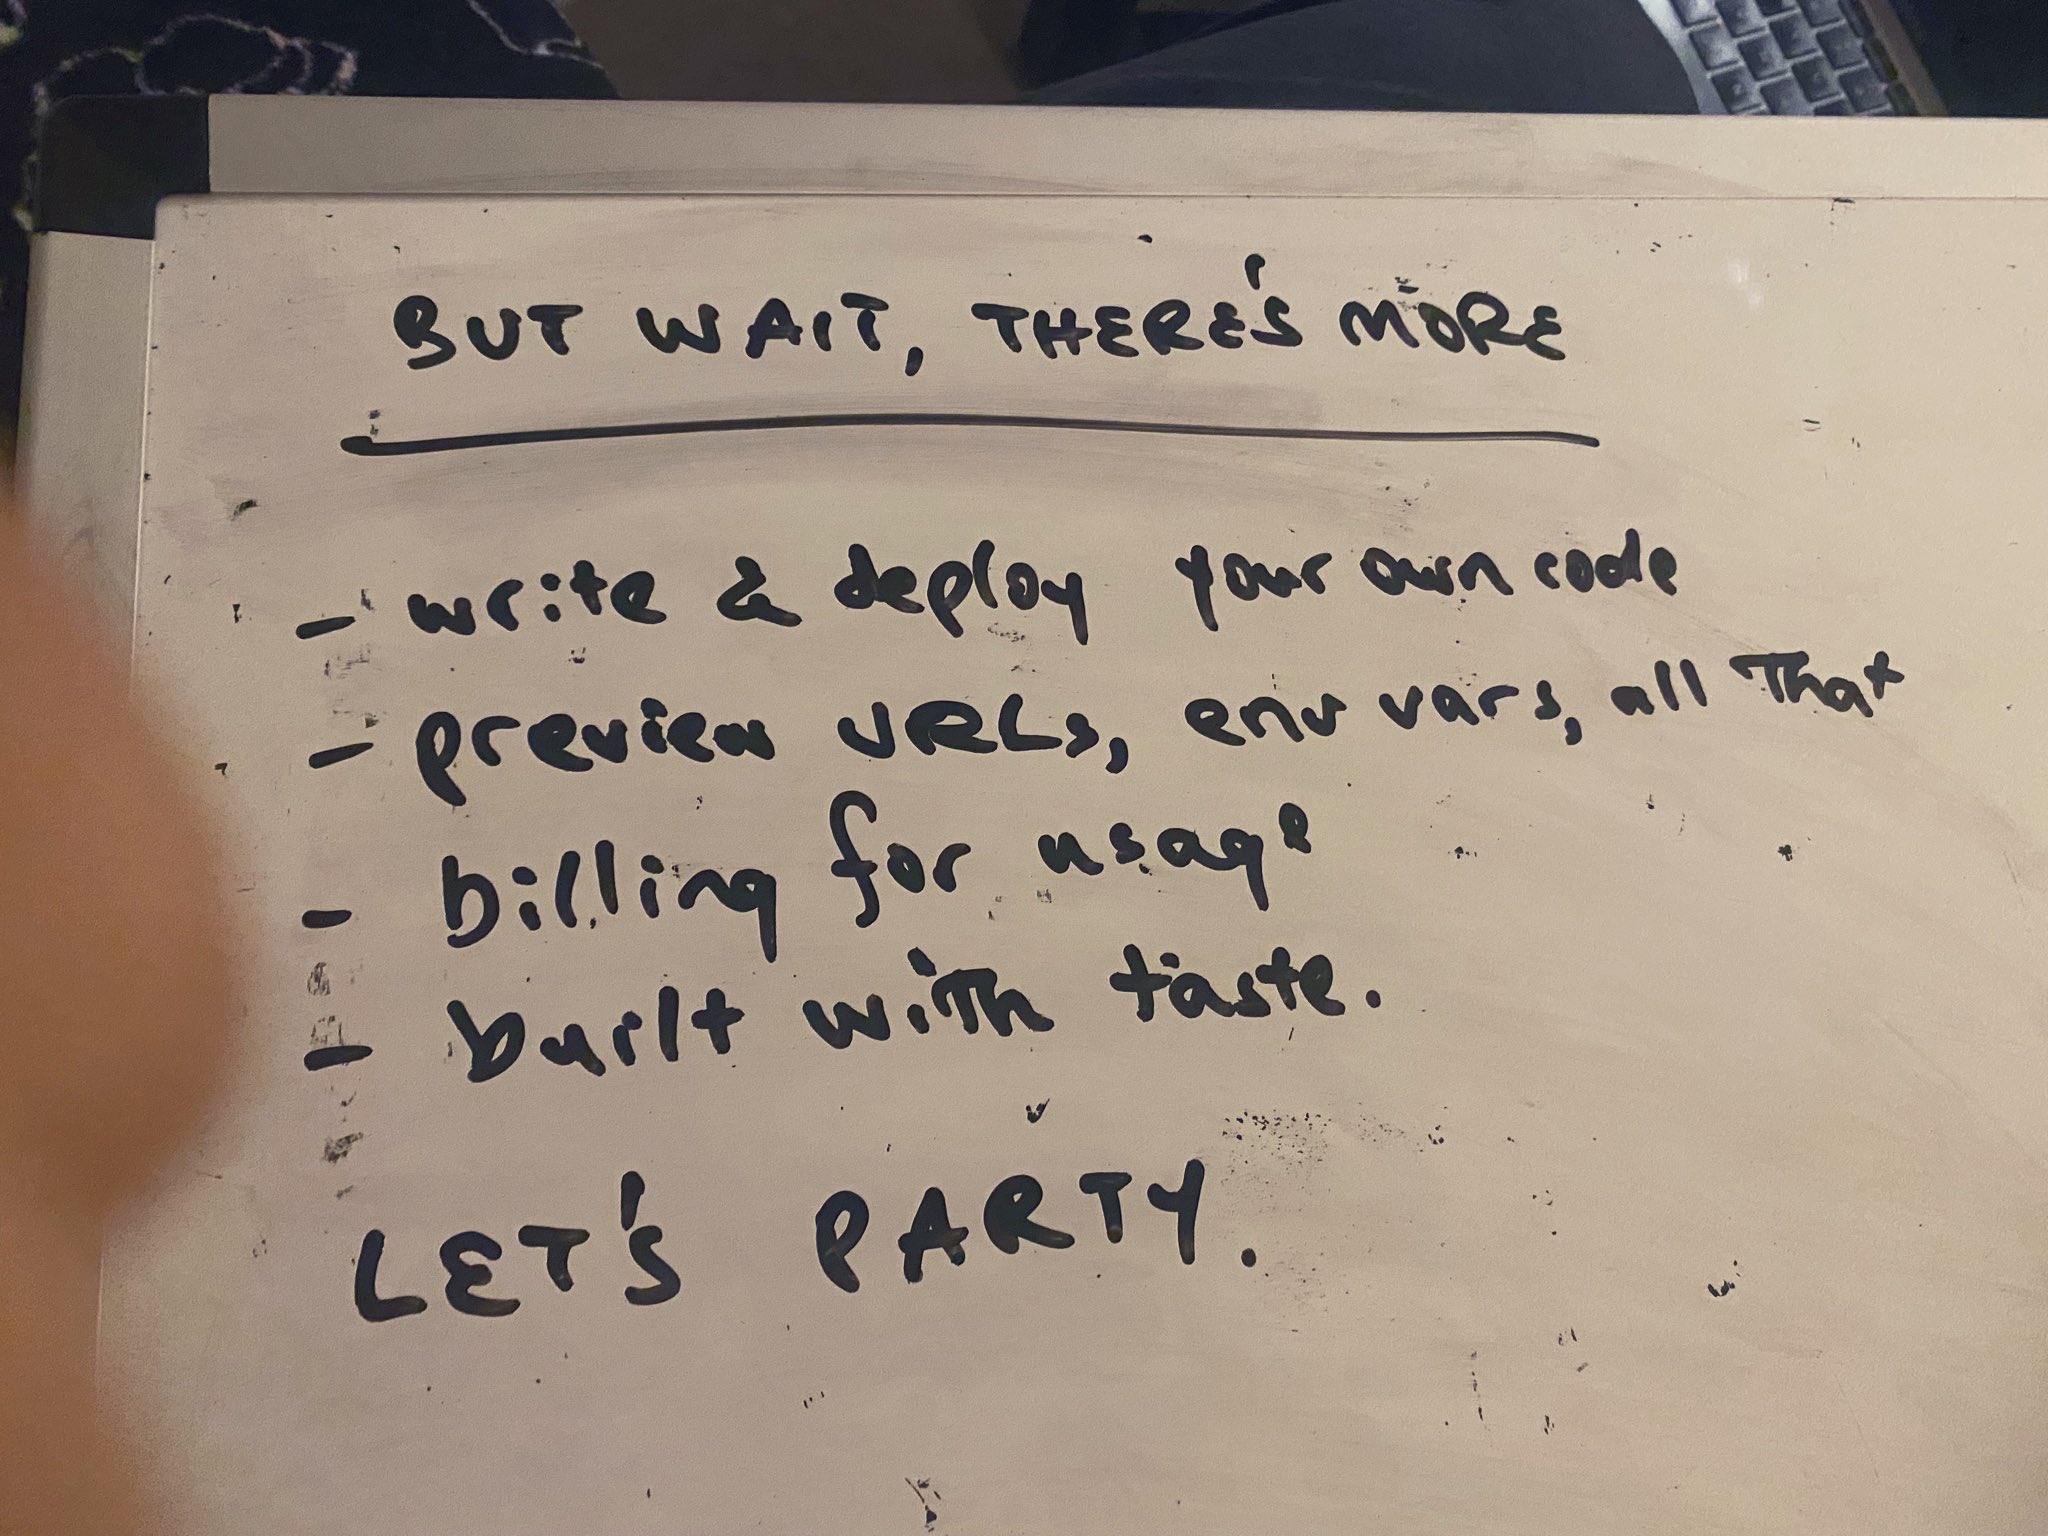 BUT WAIT, THERE'S MORE
- write & deploy your own code
- preview URLs, env vars, all that
- billing for usage
- built with taste.
LET'S PARTY.